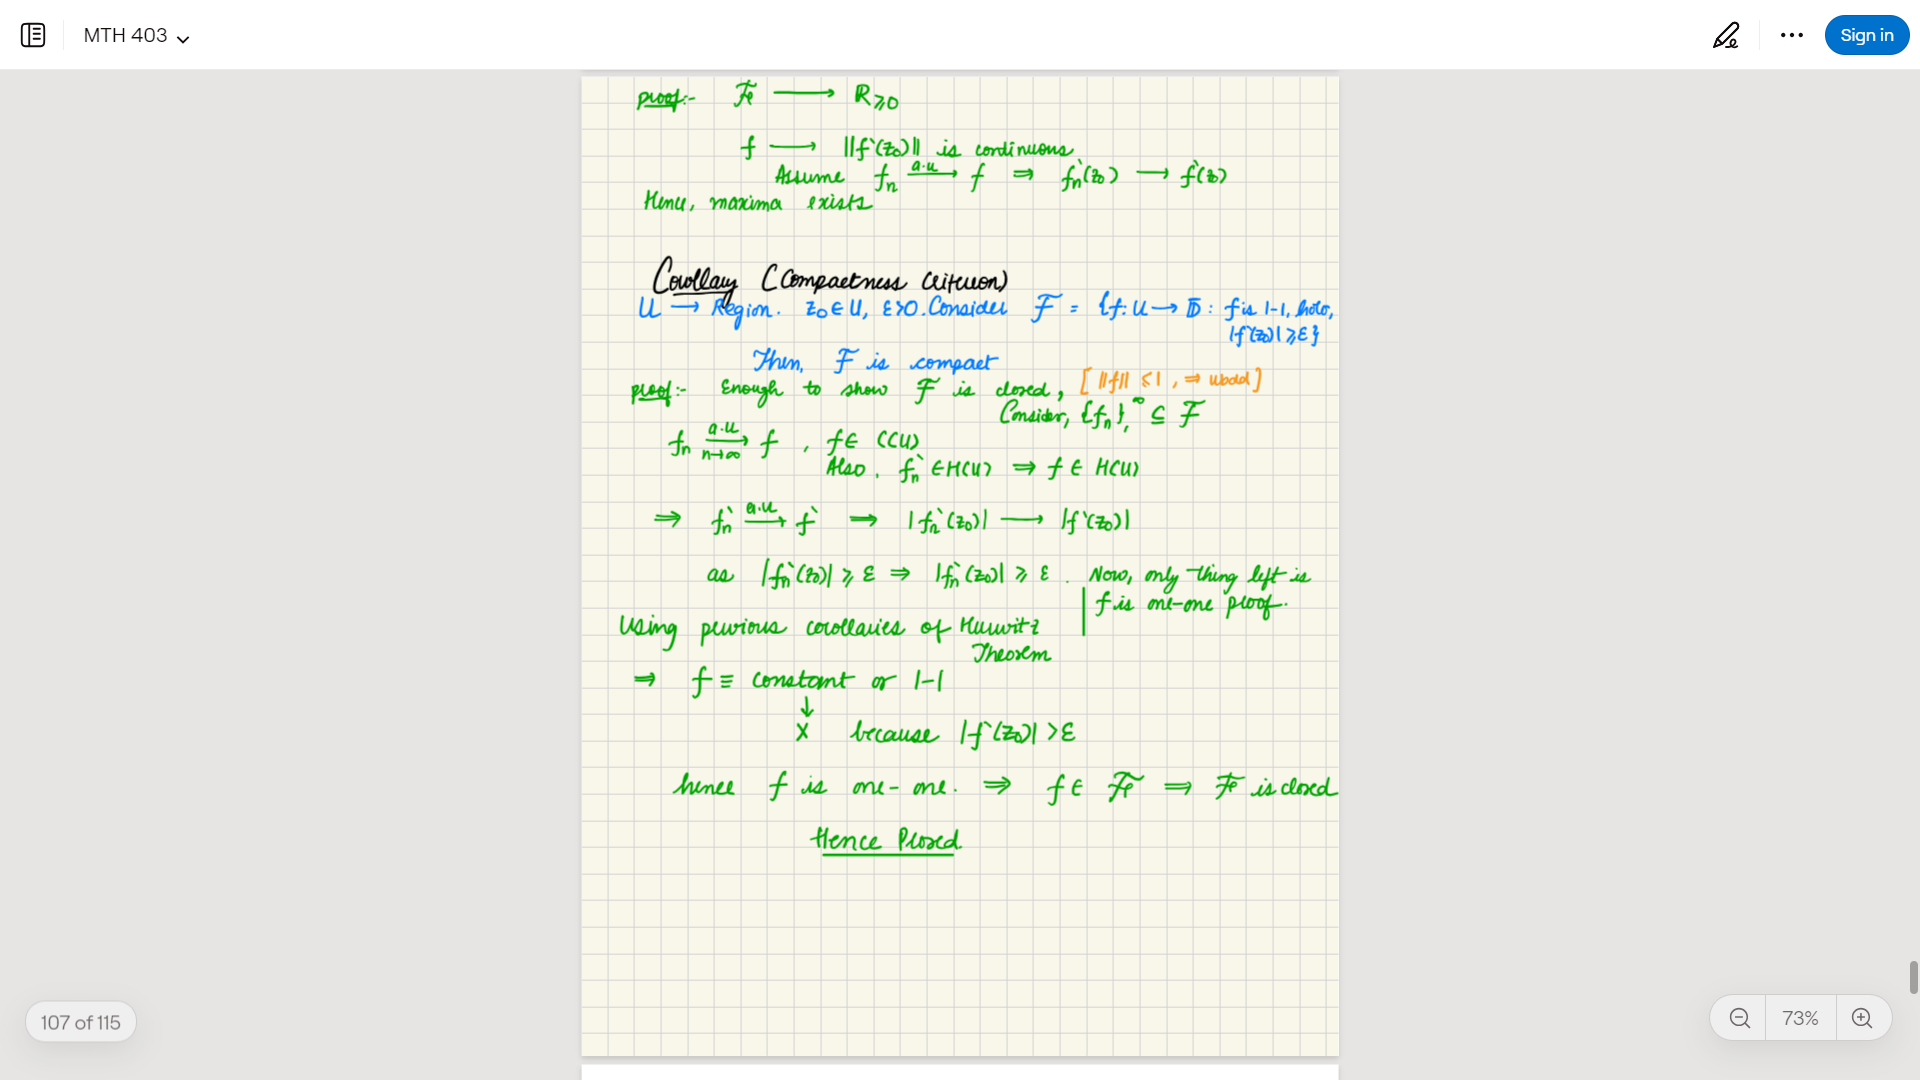 MTH 403
Sign in
proof:- Fε ⟶ ℝ≥0
f ⟶ ||f`(z₀)|| is continuous
Assume fn —a.u→ f ⇒ fn`(z₀) ⟶ f`(z₀)
Hence, maxima exists
Corollary (Compactness Criterion)
U → Region. z₀ ∈ U, ε>0. Consider F = {f: U → 𝔻 : f is 1-1, holo,
|f`(z₀)| ≥ ε}
Then, F is compact
proof:- Enough to show F is closed, [ ||f|| ≤ 1, ⇒ ubdd]
Consider, {fn}₁^∞ ⊆ F
fn —a.u→ n→∞ f , f ∈ C(U)
Also, fn` ∈ H(U) ⇒ f ∈ H(U)
⇒ fn` —a.u→ f` ⇒ |fn`(z₀)| ⟶ |f`(z₀)|
as |fn`(z₀)| ≥ ε ⇒ |fn`(z₀)| ≥ ε . Now, only thing left is
f is one-one proof.
Using previous corollaries of Hurwitz
Theorem
⇒ f ≡ constant or 1-1
↓
X because |f`(z₀)| > ε
hence f is one-one. ⇒ f ∈ Fε ⇒ Fε is closed
Hence Proved.
107 of 115
73%